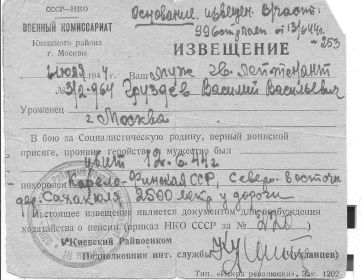 СССР—НКО
Основание: извещен. В/части
ВОЕННЫЙ КОМИССАРИАТ
Киевского района
г. Москвы
ИЗВЕЩЕНИЕ
июля 194 4 г. Ваш муж гв. лейтенант
№ 3/2-964 Груздев Василий Васильевич
Уроженец
г Москва
В бою за Социалистическую родину, верный воинской
присяге, проявив геройство и мужество был
убит 12.6.44г
похоронен Карело-Финская ССР, Северо-восточн
дер. 2500 метр у дороги
Настоящее извещение является документом для возбуждения
ходатайства о пенсии (приказ НКО СССР № 220
Киевский Райвоенком
Подполковник инт. службы (Уланцев)
Тип. «Искра революции». Зак. 1202